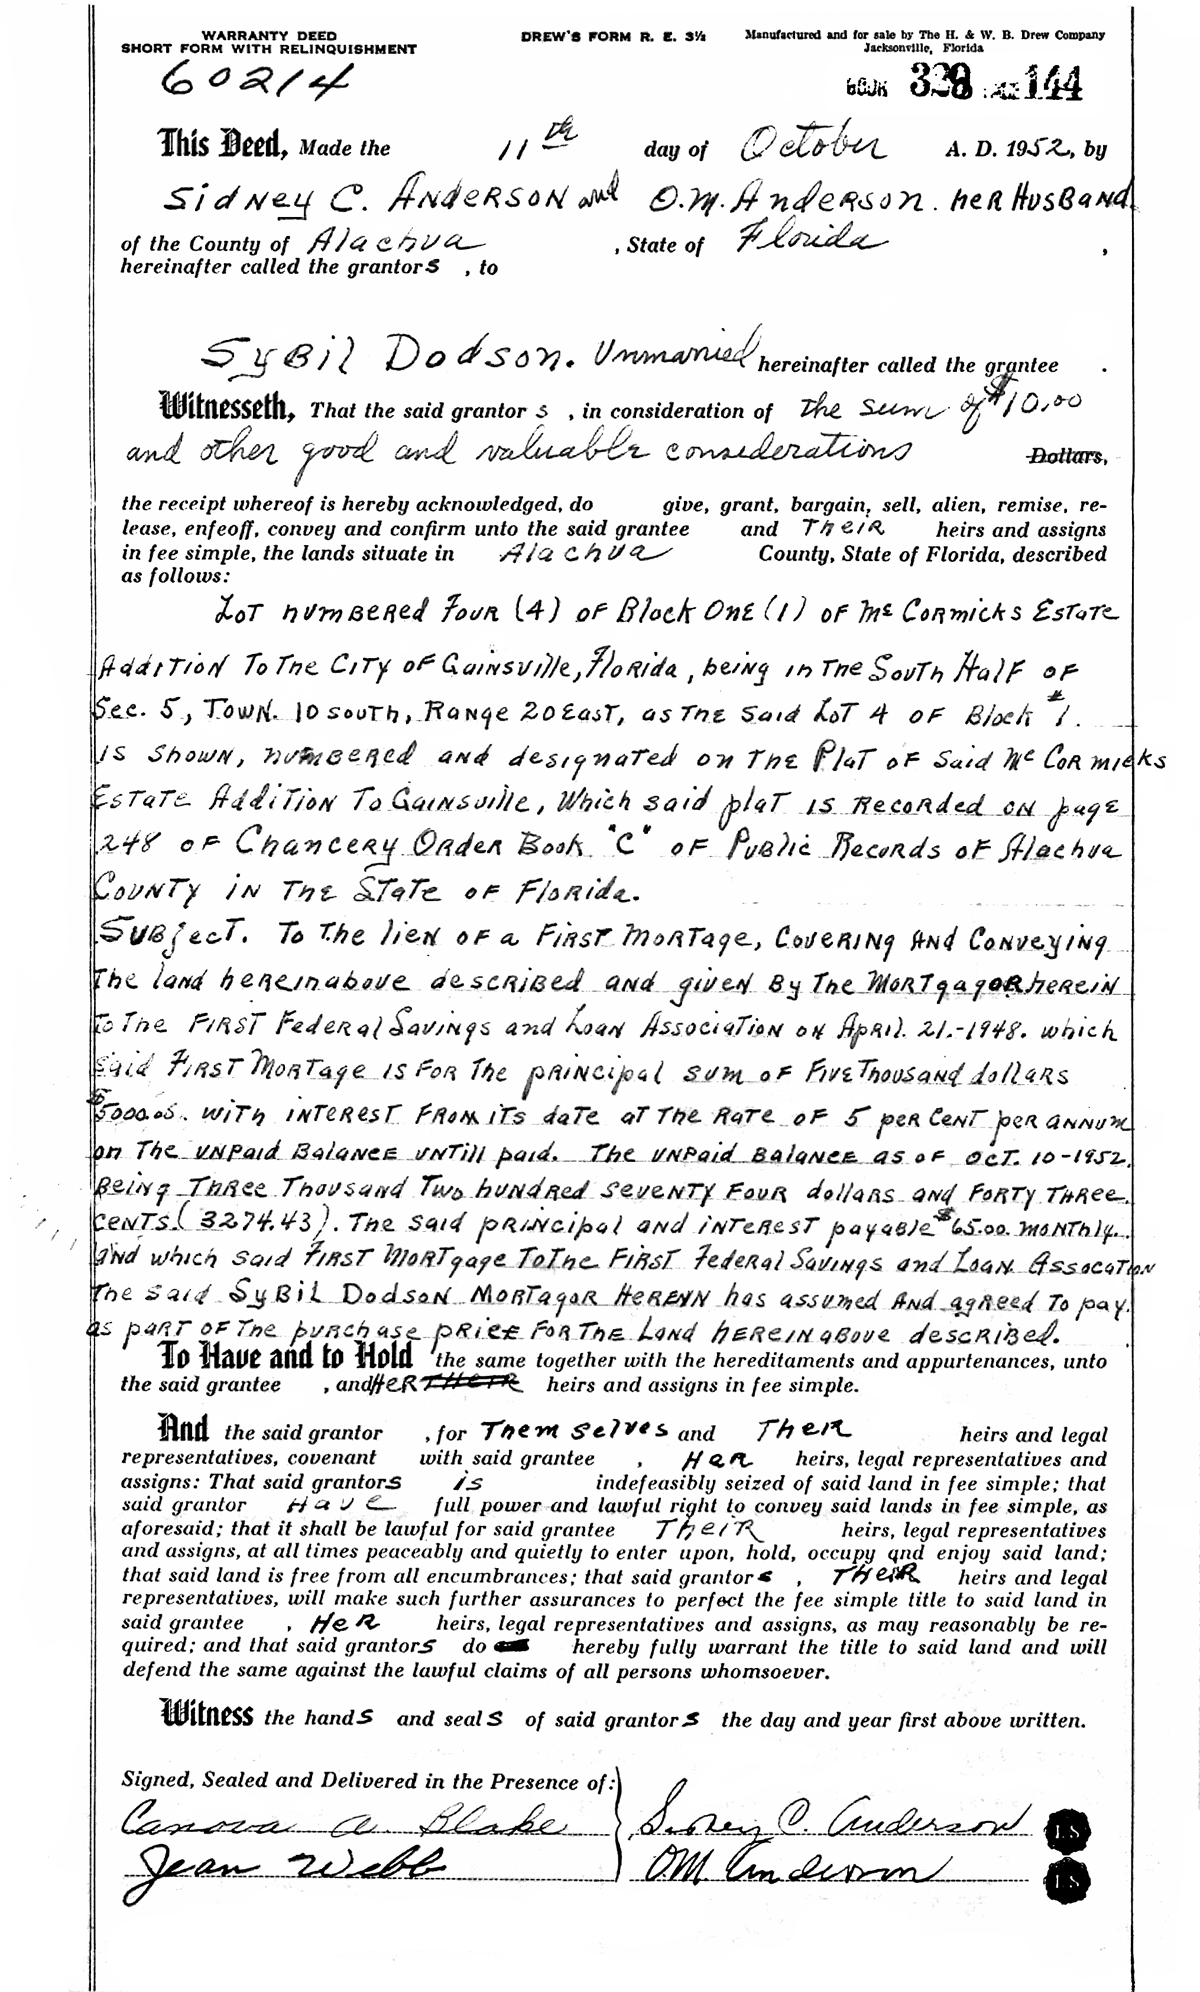 WARRANTY DEED
SHORT FORM WITH RELINQUISHMENT
DREW'S FORM R. E. 3½
Manufactured and for sale by The H. & W. B. Drew Company
Jacksonville, Florida
60214
BOOK 329 PAGE 144
This Deed, Made the 11th day of October A. D. 1952, by
Sidney C. Anderson and O.M. Anderson. her Husband
of the County of Alachua , State of Florida ,
hereinafter called the grantors , to
Sybil Dodson. Unmarried hereinafter called the grantee .
Witnesseth, That the said grantor s , in consideration of the sum of $10.00
and other good and valuable considerations Dollars,
the receipt whereof is hereby acknowledged, do give, grant, bargain, sell, alien, remise, re-
lease, enfeoff, convey and confirm unto the said grantee and Their heirs and assigns
in fee simple, the lands situate in Alachua County, State of Florida, described
as follows:
Lot numbered Four (4) of Block One (1) of McCormicks Estate
Addition To The City of Gainsville, Florida, being in The South Half of
Sec. 5, Town. 10 south, Range 20 East, as The said Lot 4 of Block #1.
is shown, numbered and designated on The Plat of Said McCormicks
Estate Addition To Gainsville, Which said plat is Recorded on page
248 of Chancery Order Book "C" of Public Records of Alachua
County in The State of Florida.
Subject. To The lien of a First Mortage, Covering And Conveying
The land hereinabove described and given By The Mortgagor herein
To The First Federal Savings and Loan Association on April. 21.-1948. which
said First Mortage is for The principal sum of Five Thousand dollars
$5000.00. with interest from its date at The Rate of 5 per cent per annum
on The unpaid Balance untill paid. The unpaid Balance as of Oct. 10-1952.
Being Three Thousand Two hundred seventy Four dollars and forty Three
cents (3274.43). The said principal and interest payable $65.00 monthly.
and which said First Mortgage To The First Federal Savings and Loan Assocation
The said Sybil Dodson Mortagor Hereyn has assumed And agreed To pay.
as part of The purchase price for The Land hereinabove described.
To Have and to Hold the same together with the hereditaments and appurtenances, unto
the said grantee , and HER THEIR heirs and assigns in fee simple.
And the said grantor , for Them selves and Their heirs and legal
representatives, covenant with said grantee , Her heirs, legal representatives and
assigns: That said grantors is indefeasibly seized of said land in fee simple; that
said grantor Have full power and lawful right to convey said lands in fee simple, as
aforesaid; that it shall be lawful for said grantee Their heirs, legal representatives
and assigns, at all times peaceably and quietly to enter upon, hold, occupy and enjoy said land;
that said land is free from all encumbrances; that said grantors , Their heirs and legal
representatives, will make such further assurances to perfect the fee simple title to said land in
said grantee , Her heirs, legal representatives and assigns, as may reasonably be re-
quired; and that said grantors do hereby fully warrant the title to said land and will
defend the same against the lawful claims of all persons whomsoever.
Witness the hands and seals of said grantors the day and year first above written.
Signed, Sealed and Delivered in the Presence of:
Canova A. Blake
Sidney C. Anderson LS
Jean Webb
O.M. Anderson LS